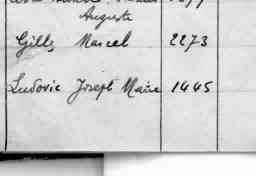 Auguste
Gills Marcel 2273
Ludovic Joseph Marie 1445